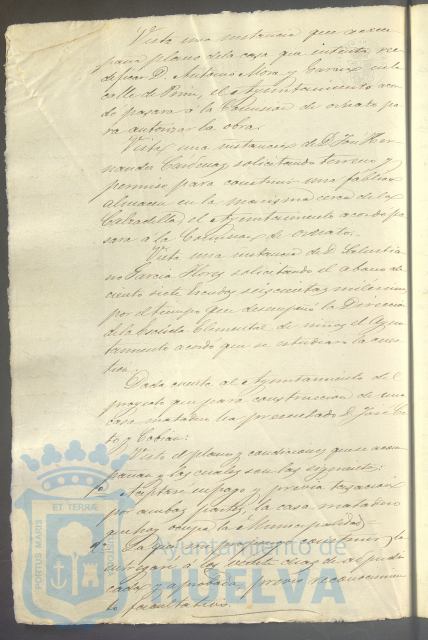 Vista una instancia que acom
paña plano de la casa que intenta ree
dificar D. Antonio Mora y Garcia en la
calle de Monja, el Ayuntamiento acor
dó pasara á la Comision de ornato pa
ra autorizar la obra.
Vista una instancia de D. José Her
nandez Cardenas solicitando terreno y
permiso para construir una fabrica
almacen en la marisma cerca de la
Calzadilla, el Ayuntamiento acordó pa
sara á la Comision de ornato.
Vista una instancia de D. Salustia
no Garcia Florez solicitando el abono de
ciento siete escudos seiscientas milesimas
por el tiempo que desempeñó la Direccion
de la Escuela Elemental de niños el Ayun
tamiento acordó que se estudiara la cues
tion.
Dada cuenta al Ayuntamiento del
proyecto que para construccion de una
casa matadero ha presentado D. José
y Cobian:
Visto el plano y condiciones que se acom
pañan y las cuales son las siguientes:
1ª Aceptan en pago y previa tasacion
por ambas partes, la casa matadero
que hoy ocupa la Municipalidad =
2ª La que se propone construir, la
entregará á los veinte dias de adjudi
cada y aprobada previo reconocimien
to facultativo.
ET TERRÆ
PORTUS MARIS
Ayuntamiento de
HUELVA